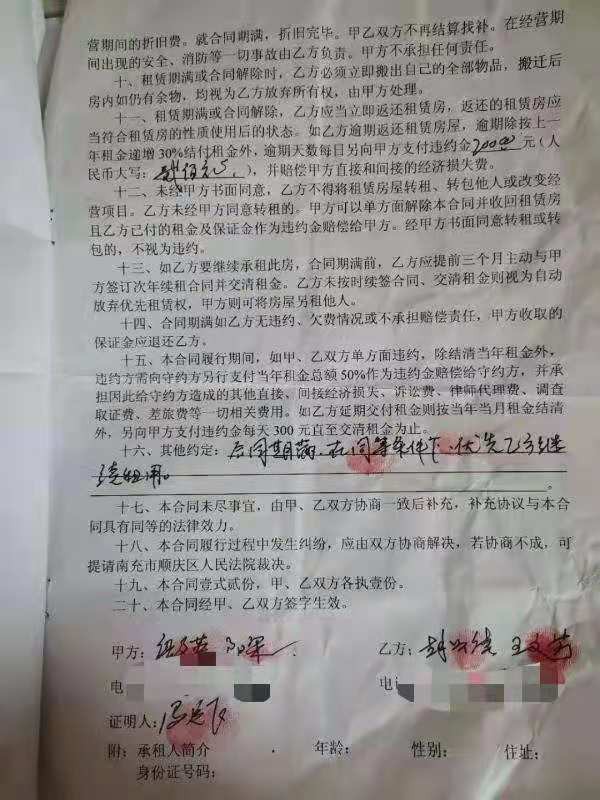 营期间的折旧费。就合同期满，折旧完毕。甲乙双方不再结算找补。在经营期
间出现的安全、消防等一切事故由乙方负责。甲方不承担任何责任。
十、租赁期满或合同解除时，乙方必须立即搬出自己的全部物品，搬迁后
房内如仍有余物，均视为乙方放弃所有权，由甲方处理。
十一、租赁期满或合同解除，乙方应当立即返还租赁房，返还的租赁房应
当符合租赁房的性质使用后的状态。如乙方逾期返还租赁房屋，逾期除按上一
年租金递增30%结付租金外，逾期天数每日另向甲方支付违约金 元（人
民币大写： ），并赔偿甲方直接和间接的经济损失费。
十二、未经甲方书面同意，乙方不得将租赁房屋转租、转包他人或改变经
营项目。乙方未经甲方同意转租的。甲方可以单方面解除本合同并收回租赁房
且乙方已付的租金及保证金作为违约金赔偿给甲方。经甲方书面同意转租或转
包的，不视为违约。
十三、如乙方要继续承租此房，合同期满前，乙方应提前三个月主动与甲
方签订次年续租合同并交清租金。乙方未按时续签合同、交清租金则视为自动
放弃优先租赁权，甲方则可将房屋另租他人。
十四、合同期满如乙方无违约、欠费情况或不承担赔偿责任，甲方收取的
保证金应退还乙方。
十五、本合同履行期间，如甲、乙双方单方面违约，除结清当年租金外，
违约方需向守约方另行支付当年租金总额50%作为违约金赔偿给守约方，并承
担因此给守约方造成的其他直接、间接经济损失、诉讼费、律师代理费、调查
取证费、差旅费等一切相关费用。如乙方延期交付租金则按当年当月租金结清
外，另向甲方支付违约金每天300元直至交清租金为止。
十六、其他约定：合同期满，在同等条件下，优先乙方继
续租用。
十七、本合同未尽事宜，由甲、乙双方协商一致后补充，补充协议与本合
同具有同等的法律效力。
十八、本合同履行过程中发生纠纷，应由双方协商解决，若协商不成，可
提请南充市顺庆区人民法院裁决。
十九、本合同壹式贰份，甲、乙双方各执壹份。
二十、本合同经甲、乙双方签字生效。
甲方： 乙方：
电 电
证明人：
附：承租人简介 年龄： 性别： 住址：
身份证号码：